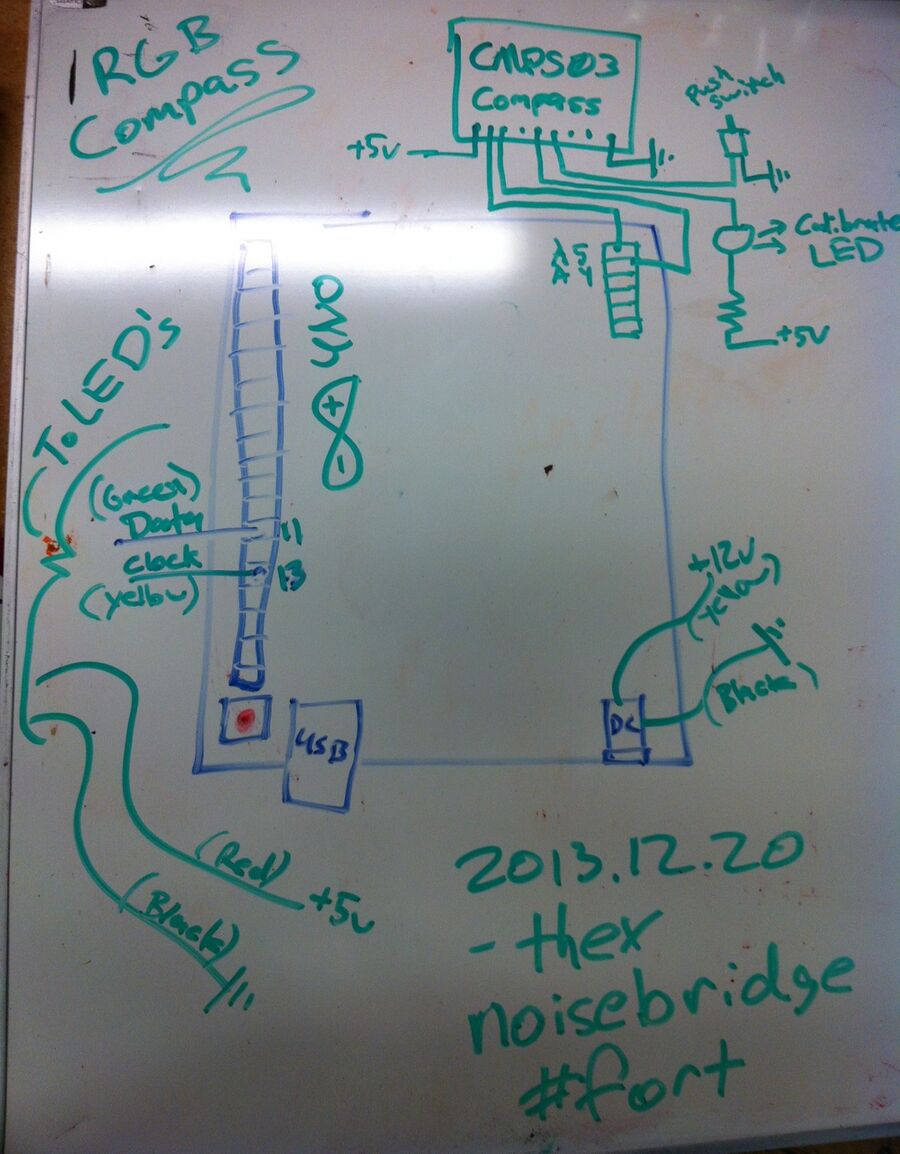 RGB
Compass
CMPS03
Compass
+5v
Push
Switch
Calibrate
LED
+5V
A5
A4
UNO
+
-
To LED's
(Green)
Data
11
clock
13
(yellow)
+12v
(Yellow)
(Black)
DC
USB
(Red)
+5v
(Black)
2013.12.20
- thex
noisebridge
#fort